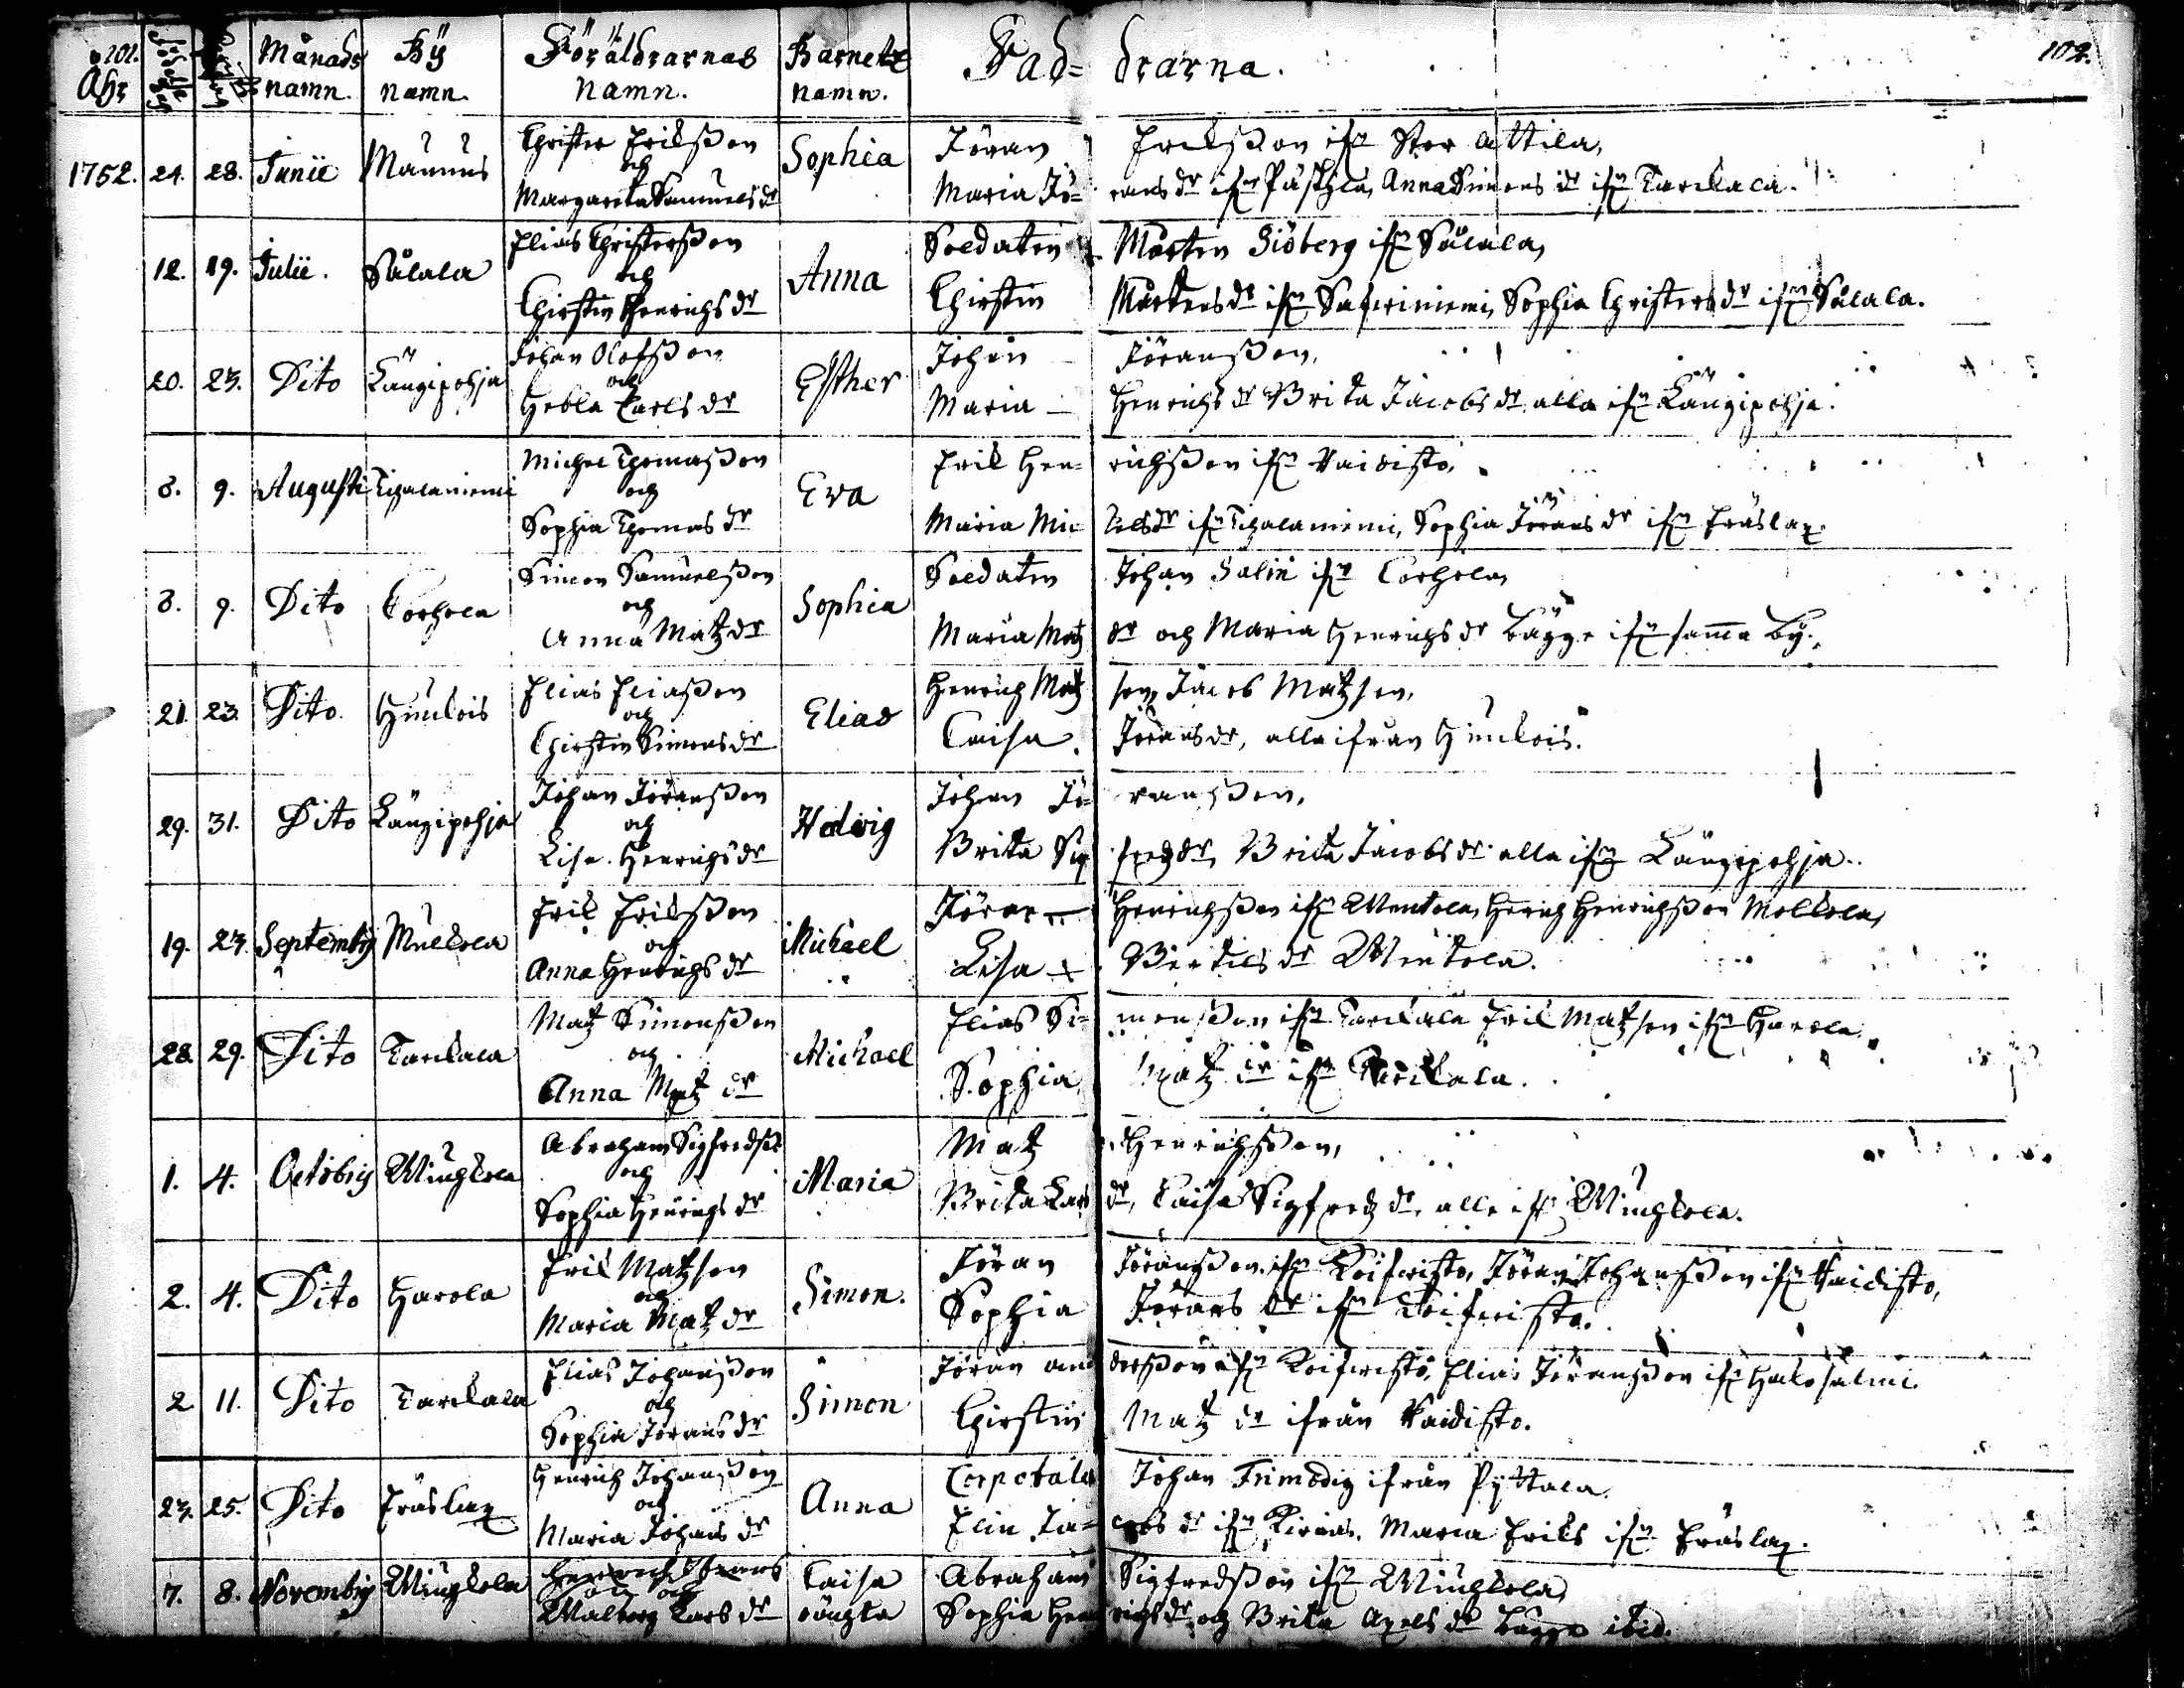 201. Månads By Föräldrarnas Barnets Fad= drarna. 102.
Åhr namn. namn. namn. namn.
1752. 24. 28. Junii Maunus Christer Erikßon och Margareta Samuels dr Sophia
Jöran Erikßon ifrn Stor Attila,
Maria Jö= rans dr ifrn Päskylä, Anna Simons dr ifrn Tarckala.
12. 19. Julii. Sålala Elias Christerßon och Chirstin Henrichs dr Anna
Soldaten Mårten Siöberg ifrn Sålala,
Chirstin Mårtens dr ifrn Safwiniemi, Sophia Christers dr ifrn Sålala.
20. 23. Dito Längipohja Johan Olofßon och Hebla Carls dr Esther
Johan Jöranßon,
Maria Henrichs dr Brita Jacobs dr alla ifrn Längipohja.
8. 9. Augusti Tihalaniemi Michel Thomaßon och Sophia Thomas dr Eva
Erik Hen= richßon ifrn Vaidisto,
Maria Mic kels dr ifrn Tihalaniemi, Sophia Jörans dr ifrn Eräslax.
8. 9. Dito Corhola Simon Samuelßon och Anna Matz dr Sophia
Soldaten Johan Salin ifrn Corhola,
Maria Matz dr och Maria Henrichs dr bägge ifrn samma by.
21. 23. Dito Hunkois Elias Eliaßon och Chirstin Simons dr Elias
Henrich Matz son, Jacob Matzson,
Caisa Jörans dr, alla ifrån Hunkois.
29. 31. Dito Längipohja Johan Jöranßon och Lisa Henrichs dr Hedvig
Johan Jö= ranßon,
Brita Sig fredz dr, Brita Jacobs dr alla ifrn Längipohja.
19. 23. Septembris Mulkola Erik Erikßon och Anna Henrichs dr Michael
Jöran Henrichßon ifrn Wentola, Henrich Henrichßon Molkola,
Lisa Bertils dr Wentola.
28. 29. Dito Tarckala Matz Simonßon och Anna Matz dr Michael
Elias Si= monßon ifrn Tarckala Erik Matzson ifrn Harola
Sophia Matz dr ifrn Tarckala.
1. 4. Octobris Winhkola Abraham Sigfredßon och Sophia Henrichs dr Maria
Matz Henrichßon,
Brita Lars dr, Caisa Sigfredz dr, alla ifrn Winhkola.
2. 4. Dito Harola Erik Matzson och Maria Matz dr Simon.
Jöran Jöranßon ifrn Koifwisto, Jöran Johanßon ifrn Vaidisto,
Sophia Jörans dr ifrn Koifwisto.
2 11. Dito Tarckala Elias Johanßon och Sophia Jörans dr Simon
Jöran and derßon ifrn Koifwisto, Elias Jöranßon ifrn Halosalmi
Chirstin Matz dr ifrån Vaidisto.
23. 25. Dito Eräslax Henrich Johanßon och Maria Johans dr Anna
Corporalen Johan Frimodig ifrån Pyttala.
Elin Ja= cobs dr ifrn Kirias. Maria Eriks ifrn Eräslax.
7. 8. Novembris Winhkola och Walborg Lars dr Caisa oächta
Abraham Sigfredßon ifrn Winhkola,
Sophia Hen richs dr och Brita Axels dr bägge ibid.